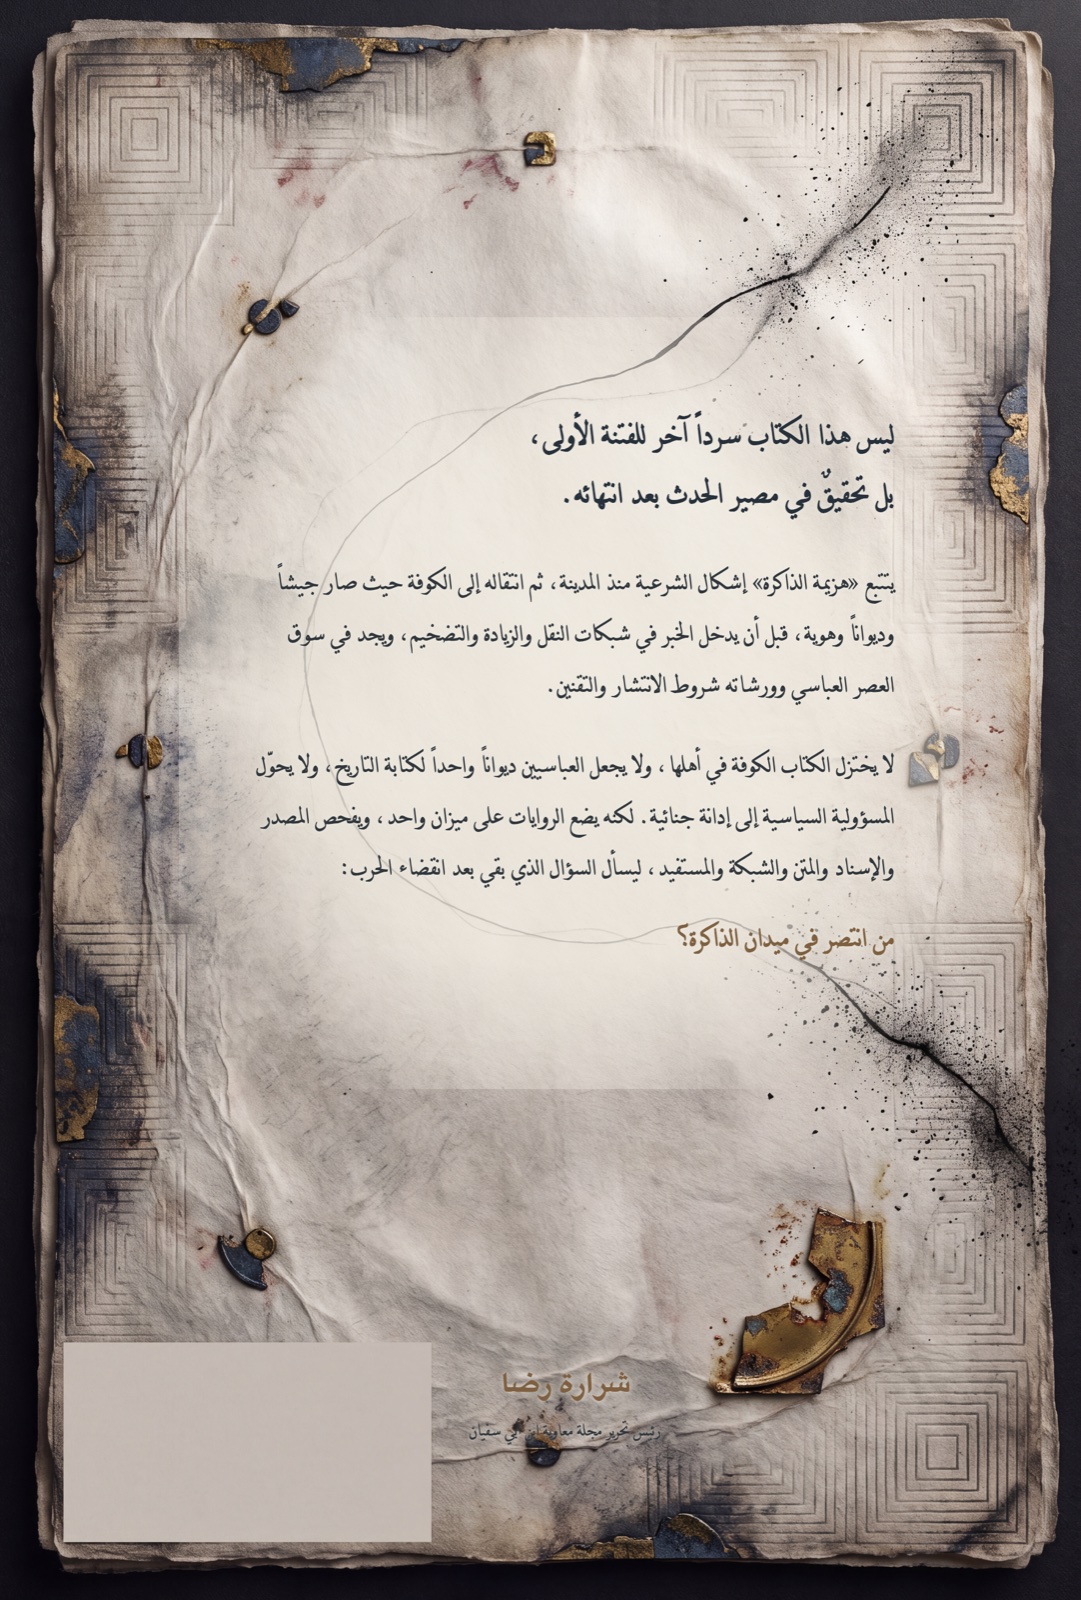 ليس هذا الكتاب سرداً آخر للفتنة الأولى،
بل تحقيقٌ في مصير الحدث بعد انتهائه.
يتتبع «هزيمة الذاكرة» إشكال الشرعية منذ المدينة، ثم انتقاله إلى الكوفة حيث صار جيشاً
وديواناً وهوية، قبل أن يدخل الخبر في شبكات النقل والزيادة والتضخيم، ويجد في سوق
العصر العباسي وورشاته شروط الانتشار والتقنين.
لا يختزل الكتاب الكوفة في أهلها، ولا يجعل العباسيين ديواناً واحداً لكتابة التاريخ، ولا يحوّل
المسؤولية السياسية إلى إدانة جنائية. لكنه يضع الروايات على ميزان واحد، ويفحص المصدر
والإسناد والمتن والشبكة والمستفيد، ليسأل السؤال الذي بقي بعد انقضاء الحرب:
من انتصر في ميدان الذاكرة؟
شرارة رضا
رئيس تحرير مجلة معاوية بن أبي سفيان